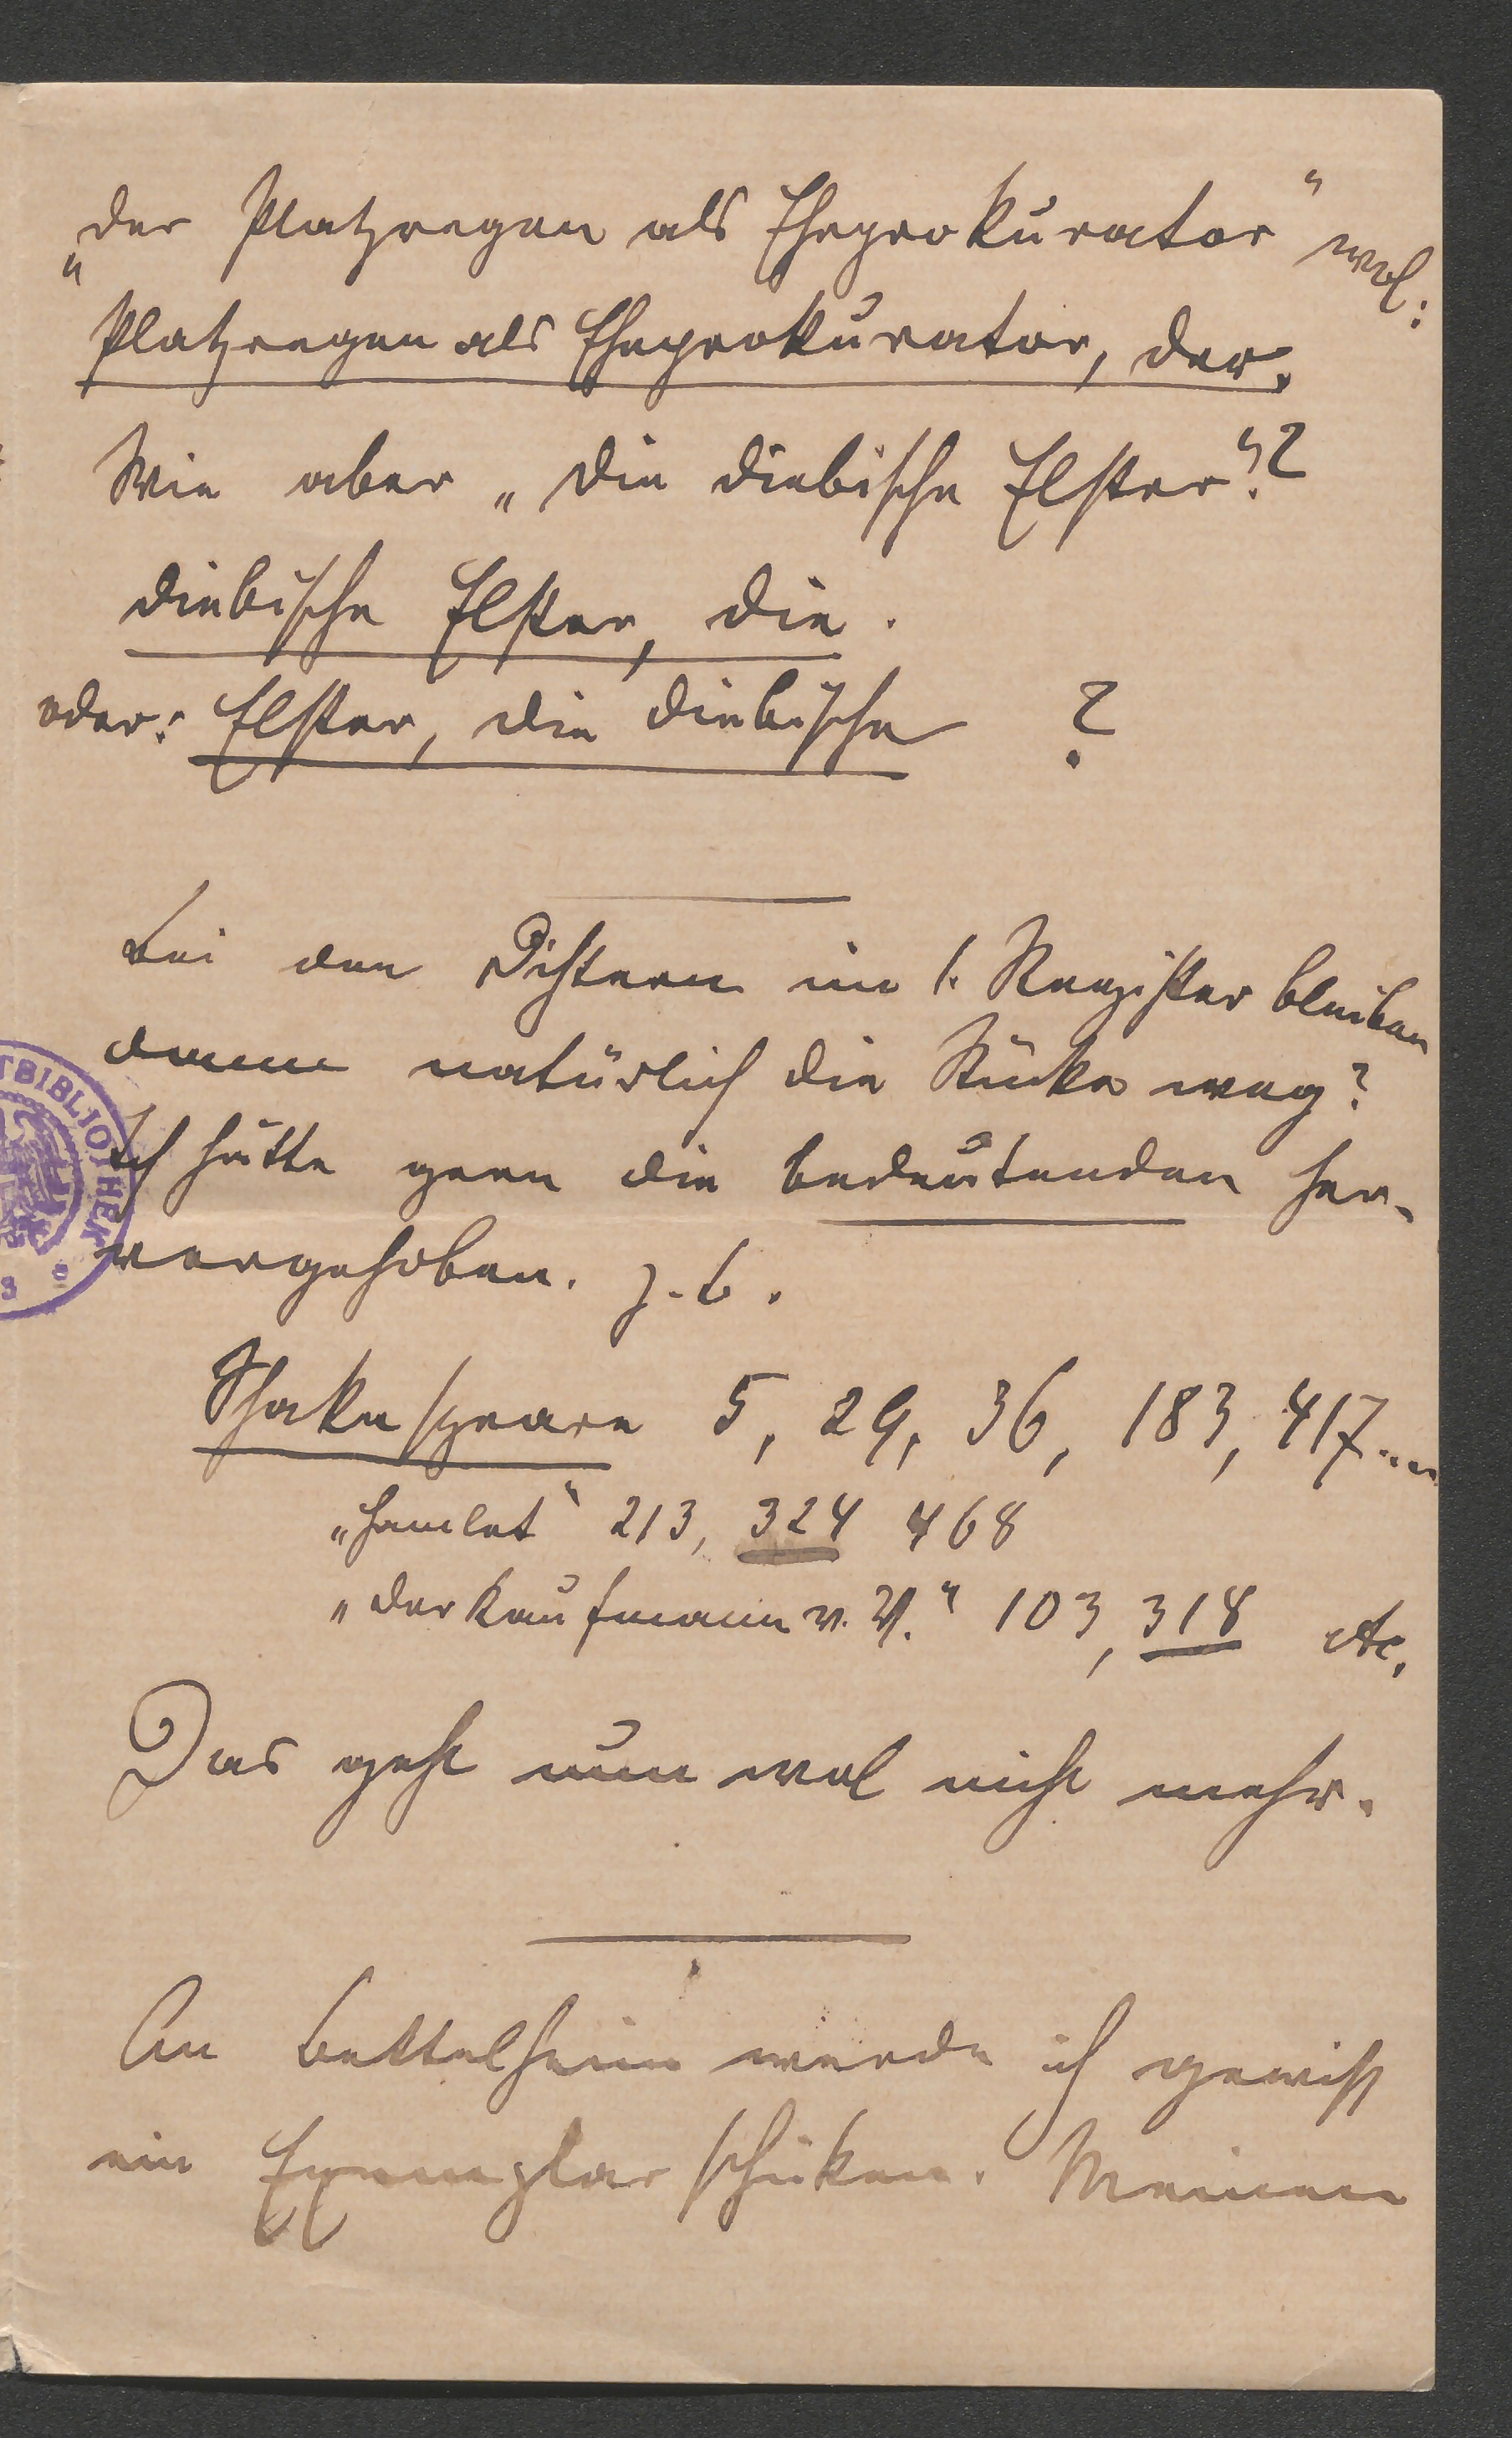 „der Platzregen als Eheprokurator“ wol:
Platzregen als Eheprokurator, der.
Wie aber „die diebische Elster“?
diebische Elster, die.
oder: Elster, die diebische ?
bei den Dichtern im 1. Register bleiben
dann natürlich die Stücke weg?
Ich hätte gern die bedeutenden her-
vorgehoben. z. b.
Shakespeare 5, 29, 36, 183, 417....
„Hamlet“ 213, 324 468
„der Kaufmann v. V.“ 103, 318 etc.
Das geht nun wol nicht mehr.
An Bettelheim werde ich gewiss
ein Exemplar schicken. Meinen
TBIBLIOTHEK